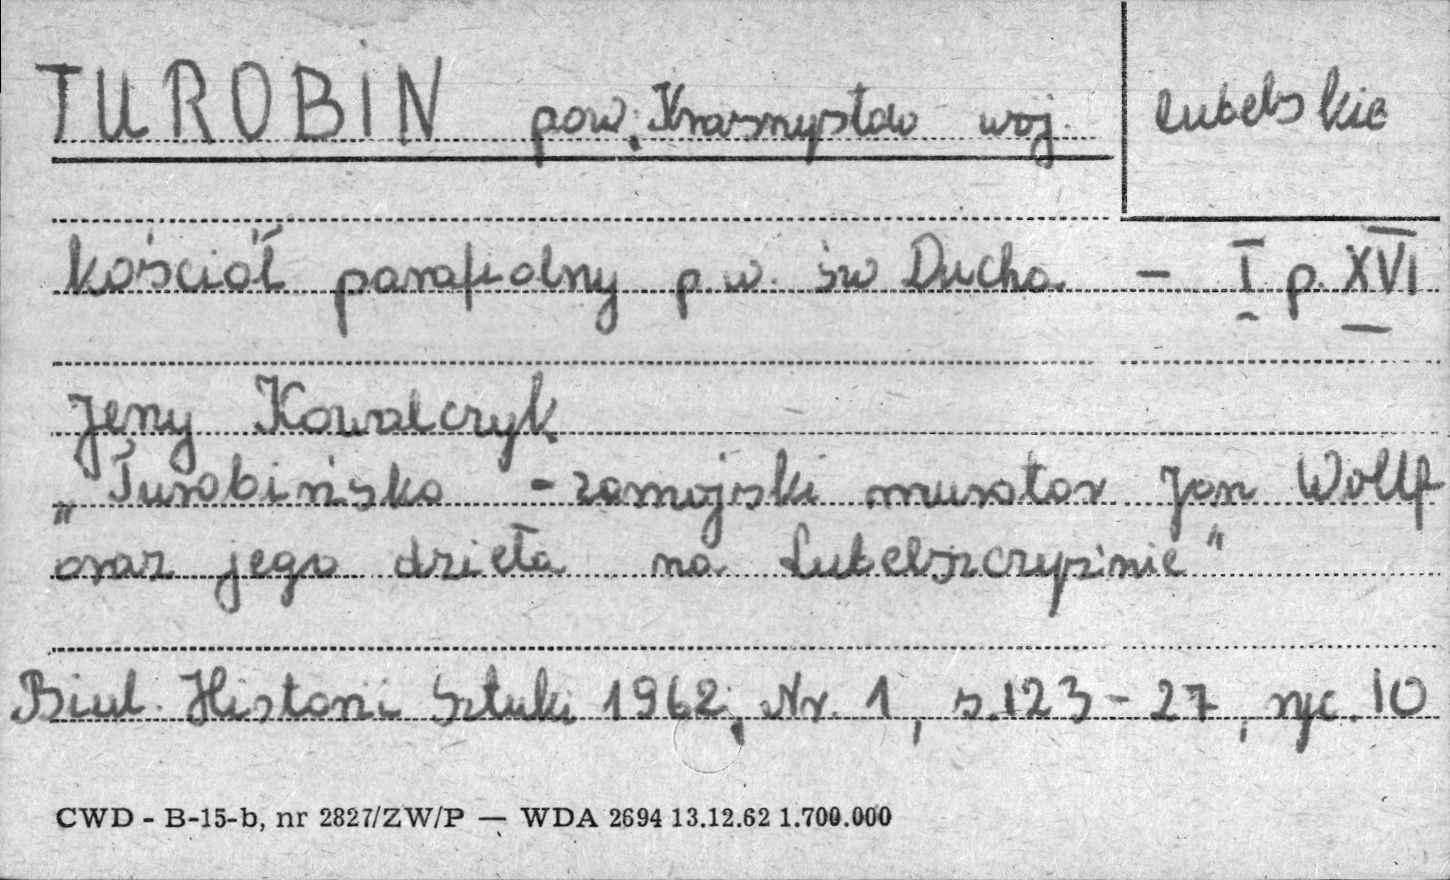 TUROBIN pow. Krasnystaw woj. lubelskie
kościół parafialny p.w. św Ducha – I p. XVI
Jerzy Kowalczyk
„Turobińsko - zamojski murator Jan Wolff
oraz jego dzieła na Lubelszczyźnie"
Biul. Historii Sztuki 1962, Nr. 1, s. 123-27, ryc. 10
CWD - B-15-b, nr 2827/ZW/P — WDA 2694 13.12.62 1.700.000